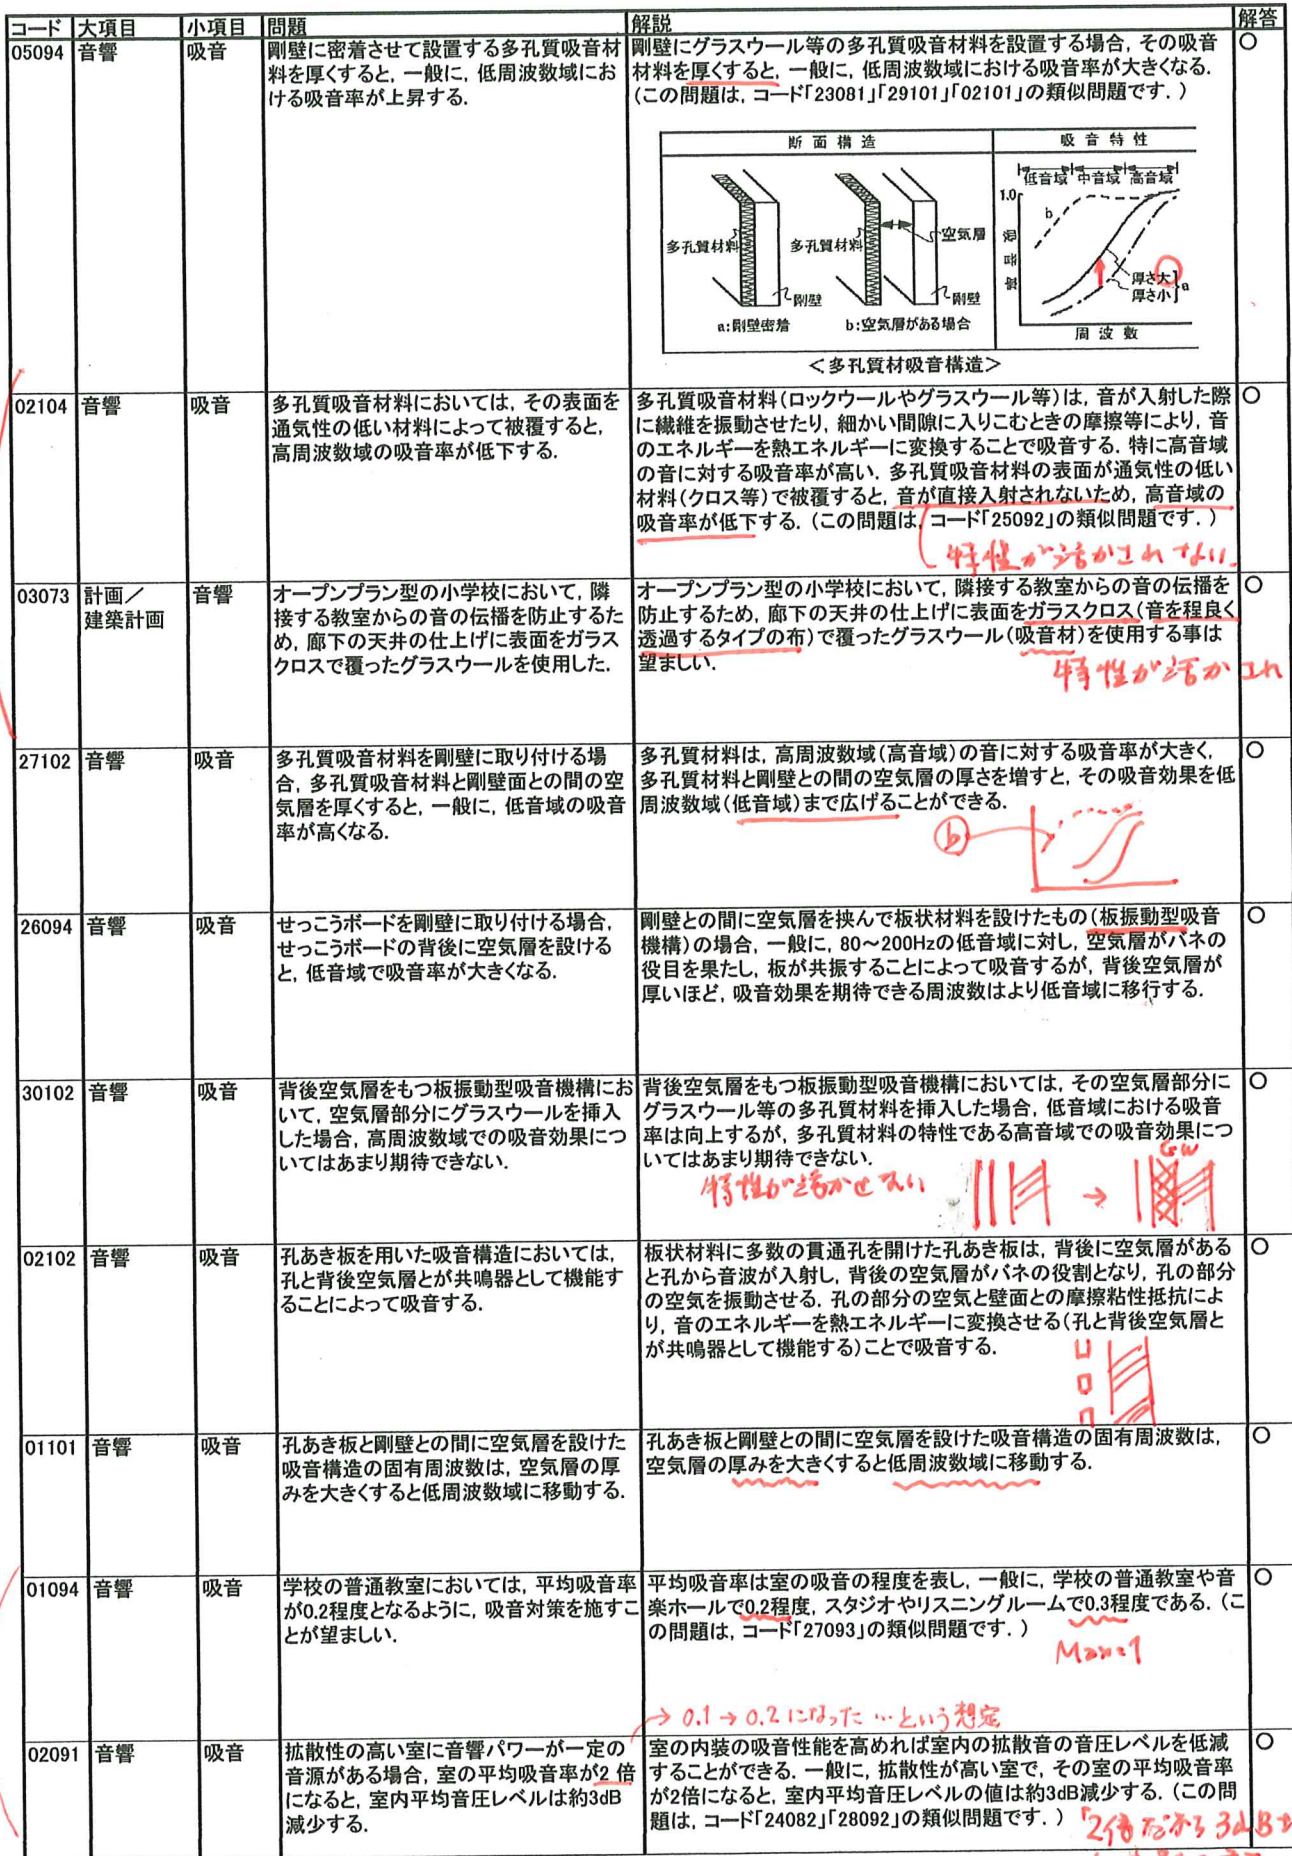 コード 大項目 小項目 問題 解説 解答
05094 音響 吸音
剛壁に密着させて設置する多孔質吸音材
料を厚くすると，一般に，低周波数域にお
ける吸音率が上昇する．
剛壁にグラスウール等の多孔質吸音材料を設置する場合，その吸音
材料を厚くすると，一般に，低周波数域における吸音率が大きくなる．
（この問題は，コード「23081」「29101」「02101」の類似問題です．）
○
断面構造
吸音特性
多孔質材料
剛壁
a：剛壁密着
多孔質材料
空気層
剛壁
b：空気層がある場合
低音域 中音域 高音域
1.0
b
吸音率
厚さ大
厚さ小
a
周波数
＜多孔質材吸音構造＞
02104 音響 吸音
多孔質吸音材料においては，その表面を
通気性の低い材料によって被覆すると，
高周波数域の吸音率が低下する．
多孔質吸音材料（ロックウールやグラスウール等）は，音が入射した際
に繊維を振動させたり，細かい間隙に入りこむときの摩擦等により，音
のエネルギーを熱エネルギーに変換することで吸音する．特に高音域
の音に対する吸音率が高い．多孔質吸音材料の表面が通気性の低い
材料（クロス等）で被覆すると，音が直接入射されないため，高音域の
吸音率が低下する．（この問題は，コード「25092」の類似問題です．）
○
特性が活かされない．
03073 計画／
建築計画
音響
オープンプラン型の小学校において，隣
接する教室からの音の伝播を防止するた
め，廊下の天井の仕上げに表面をガラス
クロスで覆ったグラスウールを使用した．
オープンプラン型の小学校において，隣接する教室からの音の伝播を
防止するため，廊下の天井の仕上げに表面をガラスクロス（音を程良く
透過するタイプの布）で覆ったグラスウール（吸音材）を使用する事は
望ましい．
○
特性が活かされ
27102 音響 吸音
多孔質吸音材料を剛壁に取り付ける場
合，多孔質吸音材料と剛壁面との間の空
気層を厚くすると，一般に，低音域の吸音
率が高くなる．
多孔質材料は，高周波数域（高音域）の音に対する吸音率が大きく，
多孔質材料と剛壁との間の空気層の厚さを増すと，その吸音効果を低
周波数域（低音域）まで広げることができる．
○
b
26094 音響 吸音
せっこうボードを剛壁に取り付ける場合，
せっこうボードの背後に空気層を設ける
と，低音域で吸音率が大きくなる．
剛壁との間に空気層を挟んで板状材料を設けたもの（板振動型吸音
機構）の場合，一般に，80～200Hzの低音域に対し，空気層がバネの
役目を果たし，板が共振することによって吸音するが，背後空気層が
厚いほど，吸音効果を期待できる周波数はより低音域に移行する．
○
30102 音響 吸音
背後空気層をもつ板振動型吸音機構にお
いて，空気層部分にグラスウールを挿入
した場合，高周波数域での吸音効果につ
いてはあまり期待できない．
背後空気層をもつ板振動型吸音機構においては，その空気層部分に
グラスウール等の多孔質材料を挿入した場合，低音域における吸音
率は向上するが，多孔質材料の特性である高音域での吸音効果につ
いてはあまり期待できない．
○
特性が活かせない
GW
→
02102 音響 吸音
孔あき板を用いた吸音構造においては，
孔と背後空気層とが共鳴器として機能す
ることによって吸音する．
板状材料に多数の貫通孔を開けた孔あき板は，背後に空気層がある
と孔から音波が入射し，背後の空気層がバネの役割となり，孔の部分
の空気を振動させる．孔の部分の空気と壁面との摩擦粘性抵抗によ
り，音のエネルギーを熱エネルギーに変換させる（孔と背後空気層と
が共鳴器として機能する）ことで吸音する．
○
01101 音響 吸音
孔あき板と剛壁との間に空気層を設けた
吸音構造の固有周波数は，空気層の厚
みを大きくすると低周波数域に移動する．
孔あき板と剛壁との間に空気層を設けた吸音構造の固有周波数は，
空気層の厚みを大きくすると低周波数域に移動する．
○
01094 音響 吸音
学校の普通教室においては，平均吸音率
が0.2程度となるように，吸音対策を施すこ
とが望ましい．
平均吸音率は室の吸音の程度を表し，一般に，学校の普通教室や音
楽ホールで0.2程度，スタジオやリスニングルームで0.3程度である．（こ
の問題は，コード「27093」の類似問題です．）
○
Max=1
→ 0.1→0.2になった…という想定
02091 音響 吸音
拡散性の高い室に音響パワーが一定の
音源がある場合，室の平均吸音率が2倍
になると，室内平均音圧レベルは約3dB
減少する．
室の内装の吸音性能を高めれば室内の拡散音の音圧レベルを低減
することができる．一般に，拡散性が高い室で，その室の平均吸音率
が2倍になると，室内平均音圧レベルの値は約3dB減少する．（この問
題は，コード「24082」「28092」の類似問題です．）
○